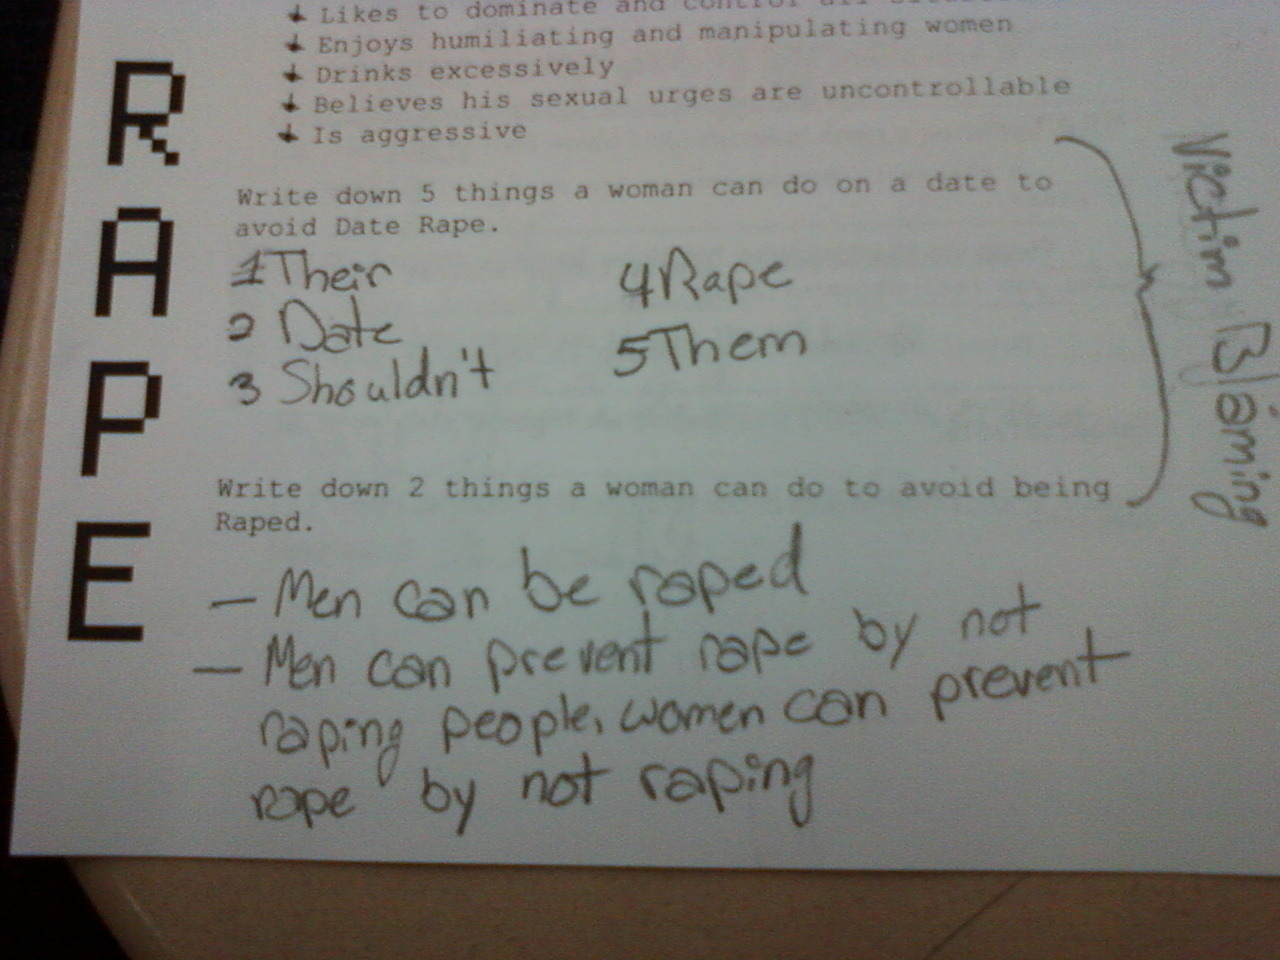 Likes to dominate and control all
Enjoys humiliating and manipulating women
Drinks excessively
Believes his sexual urges are uncontrollable
Is aggressive
RAPE
Write down 5 things a woman can do on a date to
avoid Date Rape.
1 Their
2 Date
3 Shouldn't
4 Rape
5 Them
Victim Blaming
Write down 2 things a woman can do to avoid being
Raped.
— Men can be raped
— Men can prevent rape by not
raping people, women can prevent
rape by not raping